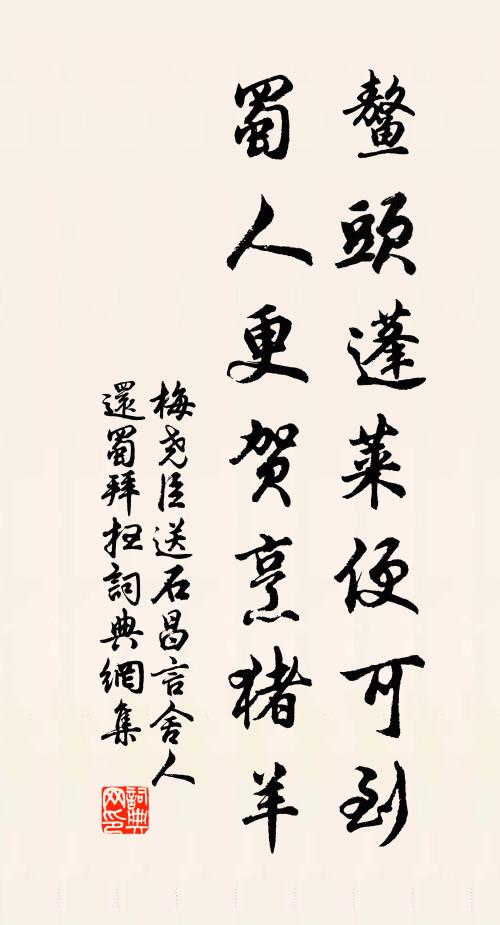 鰲頭蓬萊便可到
蜀人更贺烹猪羊
梅尧臣送石昌言舍人
還蜀拜掃詞典網集
詞典网印